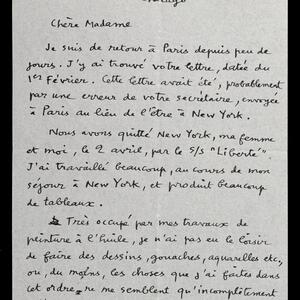 Chère Madame
Je suis de retour à Paris depuis peu de
jours. J'y ai trouvé votre lettre, datée du
1er Février. Cette lettre avait été, probablement
par une erreur de votre secrétaire, envoyée
à Paris au lieu de l'être à New York.
Nous avons quitté New York, ma femme
et moi, le 2 avril, par le S/S "Liberté".
J'ai travaillé beaucoup, au cours de mon
séjour à New York, et produit beaucoup
de tableaux.
Très occupé par mes travaux de
peinture à l'huile, je n'ai pas eu le loisir
de faire des dessins, gouaches, aquarelles etc,
ou, du moins, les choses que j'ai faites dans
cet ordre, me semblent qu'incomplètement